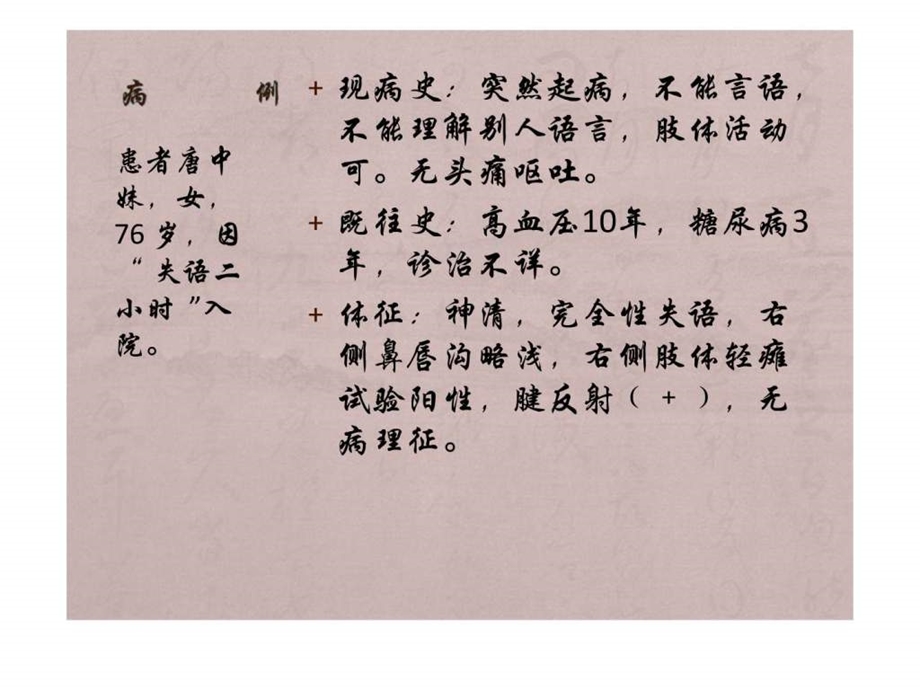 病 例
患者唐中
妹，女，
76岁，因
“失语二
小时”入
院。
+ 现病史：突然起病，不能言语，
不能理解别人语言，肢体活动
可。无头痛呕吐。
+ 既往史：高血压10年，糖尿病3
年，诊治不详。
+ 体征：神清，完全性失语，右
侧鼻唇沟略浅，右侧肢体轻瘫
试验阳性，腱反射（+），无
病理征。